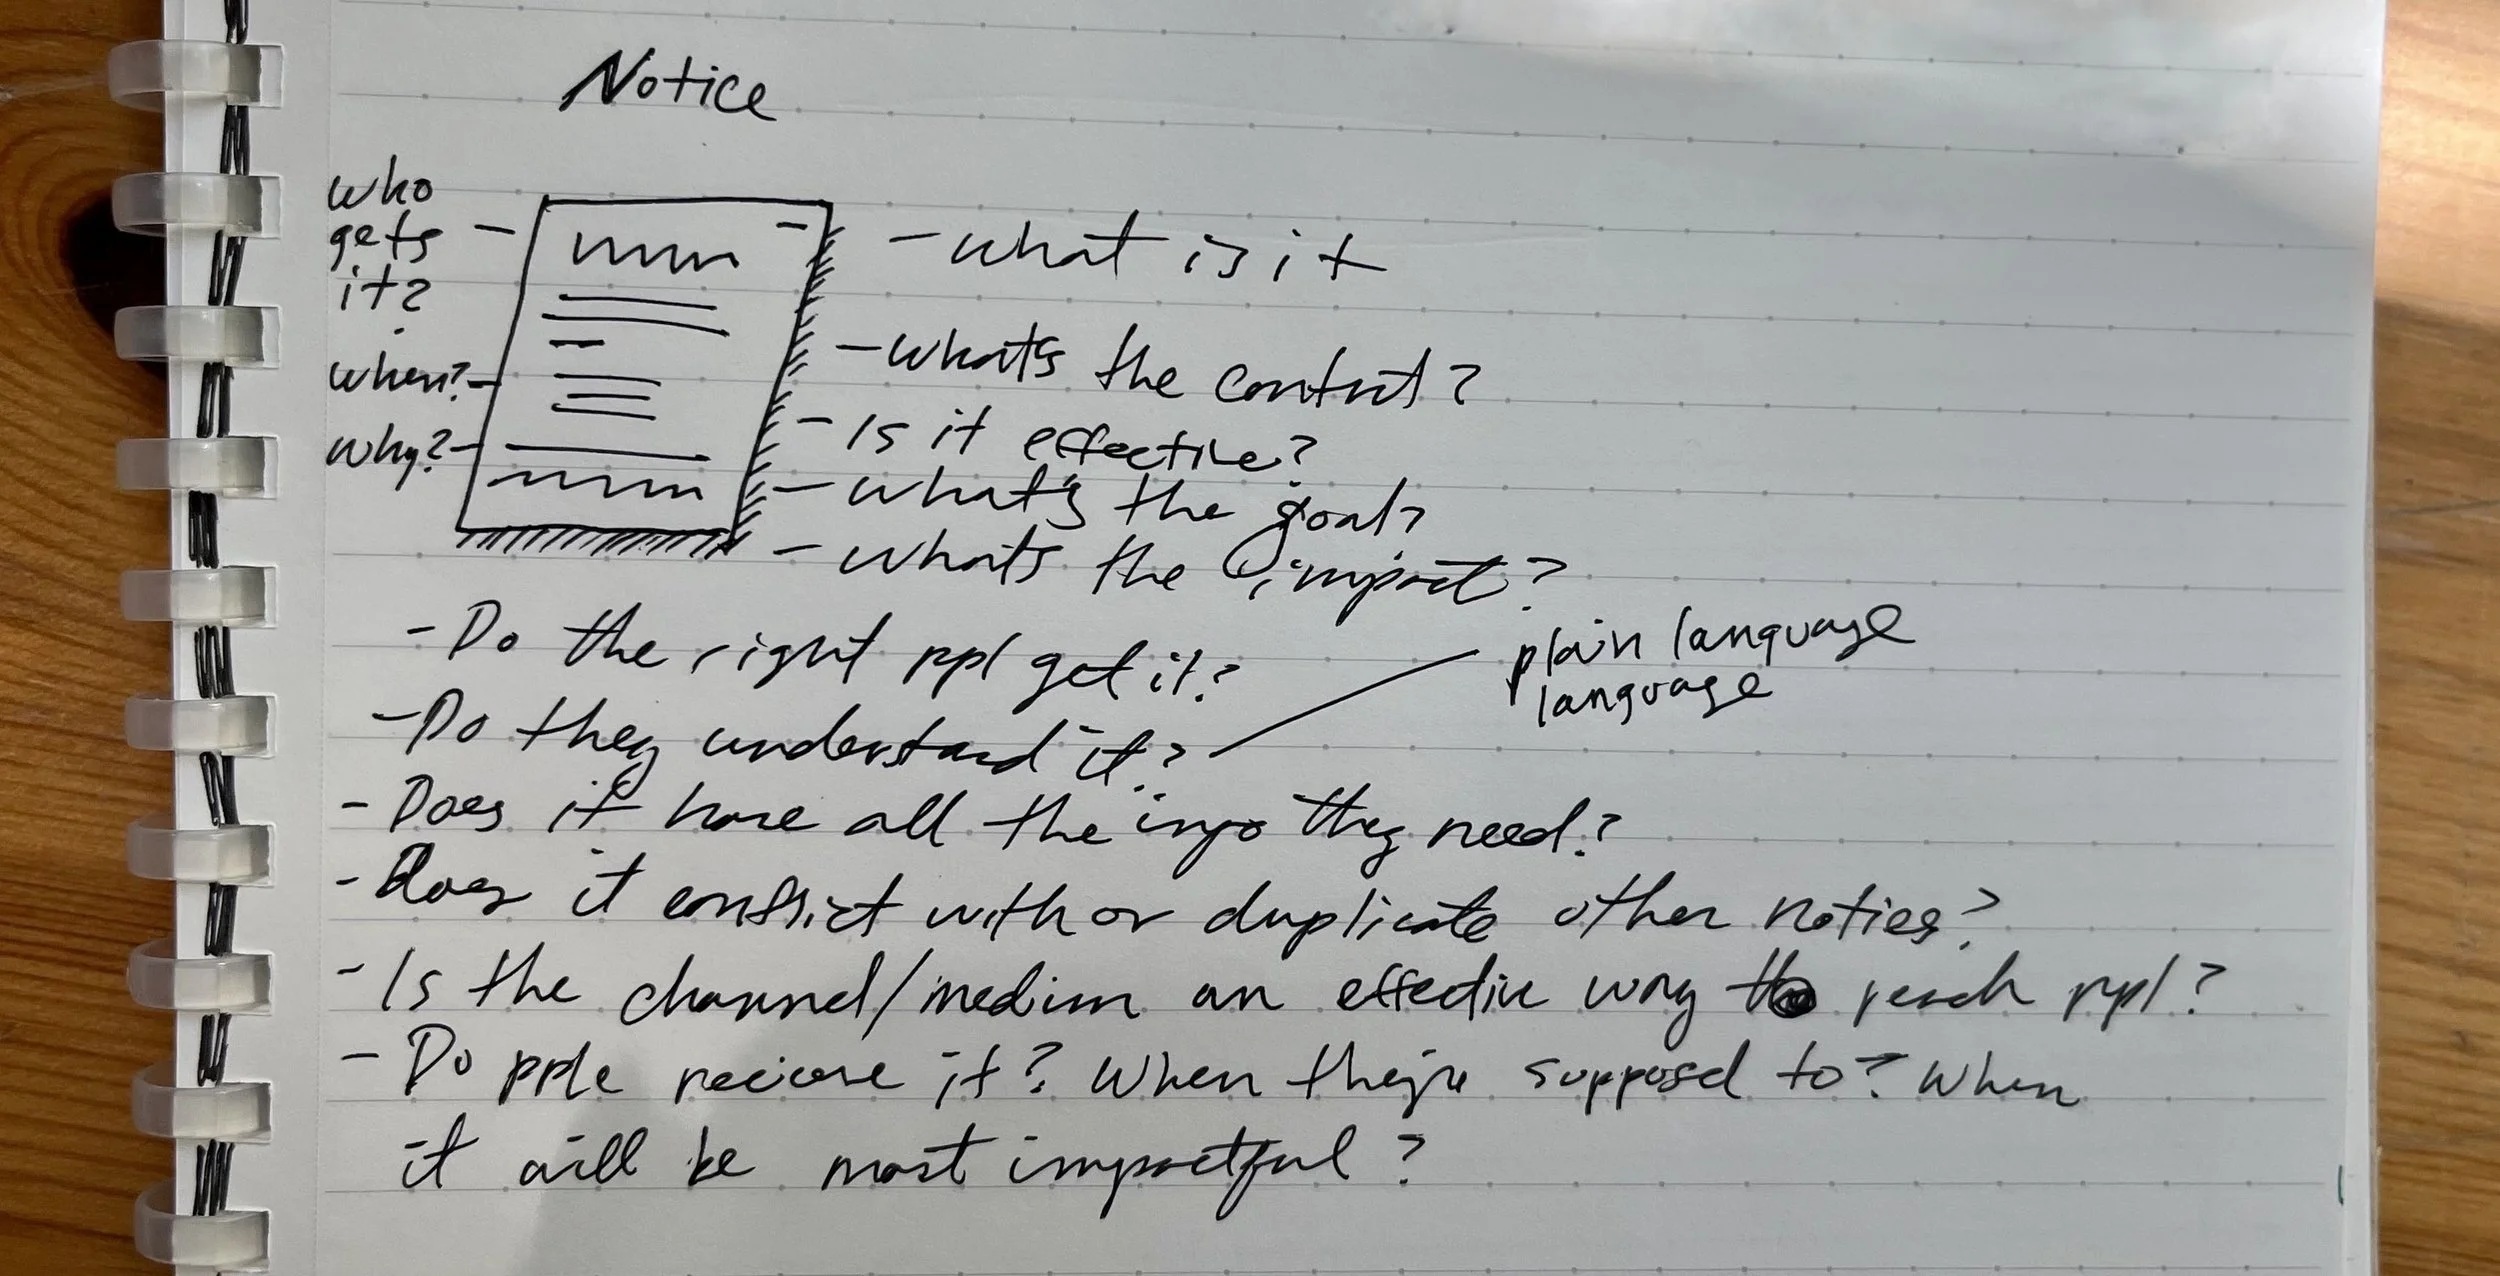 Notice
who
gets
it?
when?
why?
- what is it
- what's the context?
- Is it effective?
- what's the goal?
- what's the impact?
- Do the right ppl get it?
- Do they understand it?
plain language
language
- Does it have all the info they need?
- Does it conflict with or duplicate other noties?
- Is the channel/medium an effective way to reach ppl?
- Do pple recieve it? When they're supposed to? When
it will be most impactful?